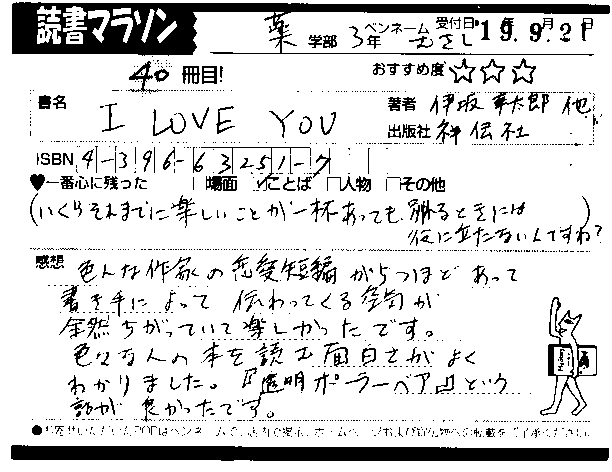 読書マラソン
薬 学部 3年 ペンネーム むさし 受付日 '19.9.21
40 冊目! おすすめ度 ☆☆☆
書名 I LOVE YOU 著者 伊坂幸太郎 他
出版社 祥伝社
ISBN 4-396-63251-7
♥一番心に残った □場面 ☑ことば □人物 □その他
(いくらそれまでに楽しいことが一杯あっても、別れるときには
役に立たないんですね?)
感想 色んな作家の恋愛短編が5つほどあって
書き手によって伝わってくる空気が
全然ちがっていて楽しかったです。
色々な人の本を読む面白さがよく
わかりました。『透明ポーラーベア』という
話が良かったです。
●お寄せいただいたPOPはペンネームで、店内で掲示、ホームページおよび宣伝物への転載をご了承ください。